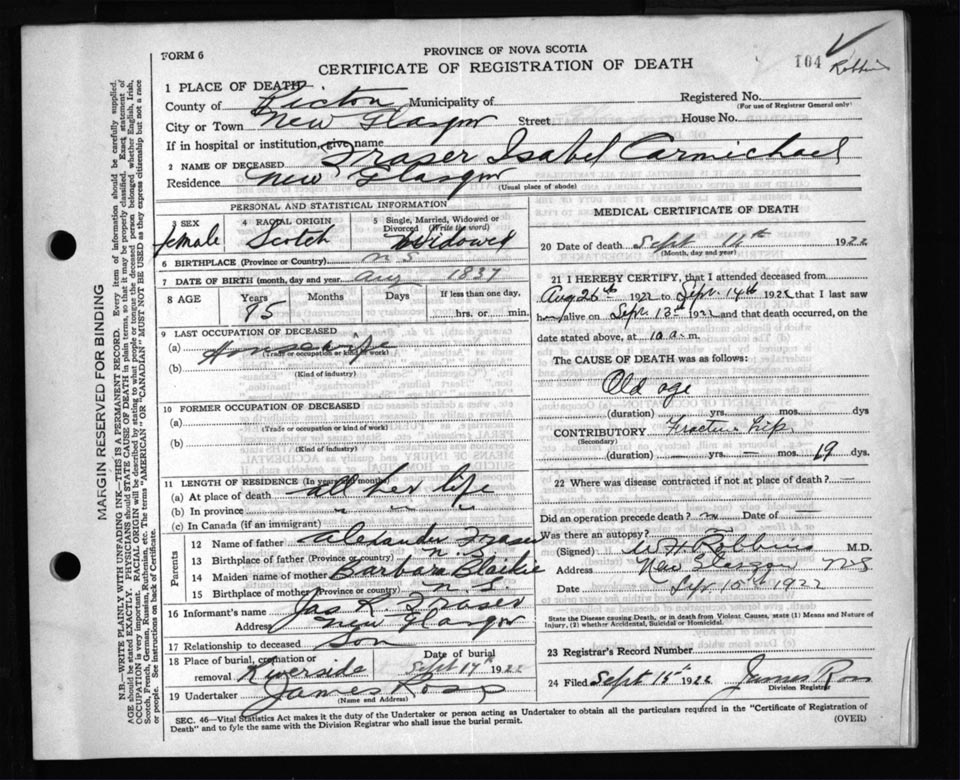 FORM 6
PROVINCE OF NOVA SCOTIA
CERTIFICATE OF REGISTRATION OF DEATH
104
Robbins
1 PLACE OF DEATH
County of Pictou Municipality of
Registered No.
(For use of Registrar General only)
City or Town New Glasgow Street
House No.
If in hospital or institution, give name
2 NAME OF DECEASED Fraser Isabel Carmichael
Residence New Glasgow
(Usual place of abode)
PERSONAL AND STATISTICAL INFORMATION
3 SEX
female
4 RACIAL ORIGIN
Scotch
5 Single, Married, Widowed or Divorced (Write the word)
Widowed
6 BIRTHPLACE (Province or Country) N.S.
7 DATE OF BIRTH (month, day and year) Aug 1837
8 AGE Years Months Days If less than one day,
85 hrs. or min.
9 LAST OCCUPATION OF DECEASED
(a) Housewife
(Trade or occupation or kind of work)
(b)
(Kind of industry)
10 FORMER OCCUPATION OF DECEASED
(a)
(Trade or occupation or kind of work)
(b)
(Kind of industry)
11 LENGTH OF RESIDENCE (In years and months)
(a) At place of death all her life
(b) In province " " "
(c) In Canada (if an immigrant)
Parents
12 Name of father Alexander Fraser
13 Birthplace of father (Province or country) N.S.
14 Maiden name of mother Barbara Blackie
15 Birthplace of mother (Province or country) N.S.
16 Informant's name Jas R. Fraser
Address New Glasgow
17 Relationship to deceased Son
18 Place of burial, cremation or removal Riverside
Date of burial
Sept 17th 1922
19 Undertaker James Ross
(Name and Address)
MEDICAL CERTIFICATE OF DEATH
20 Date of death Sept 14th 1922
(Month, day and year)
21 I HEREBY CERTIFY, that I attended deceased from
Aug 26th 1922 to Sept. 14th 1922 that I last saw
her alive on Sept 13th 1922 and that death occurred, on
date stated above, at 10 a.m.
The CAUSE OF DEATH was as follows:
Old age
(duration) yrs. mos. dys
CONTRIBUTORY Fracture hip
(Secondary)
(duration) — yrs. — mos. 19 dys.
22 Where was disease contracted if not at place of death?
Did an operation precede death? no Date of —
Was there an autopsy? no
(Signed) W H Robbins M.D.
Address New Glasgow N.S.
Date Sept. 15th 1922
State the Disease causing Death, or in death from Violent Causes, state (1) Means and Nature of Injury, (2) whether Accidental, Suicidal or Homicidal.
23 Registrar's Record Number
24 Filed Sept 15th 1922 James Ross
Division Registrar
SEC. 46—Vital Statistics Act makes it the duty of the Undertaker or person acting as Undertaker to obtain all the particulars required in the "Certificate of Registration of
Death" and to fyle the same with the Division Registrar who shall issue the burial permit.
(OVER)
MARGIN RESERVED FOR BINDING
N.B.—WRITE PLAINLY WITH UNFADING INK—THIS IS A PERMANENT RECORD. Every item of information should be carefully supplied.
AGE should be stated EXACTLY. PHYSICIANS should STATE CAUSE OF DEATH in plain terms, so that it may be properly classified. Exact statement of
OCCUPATION is very important. RACIAL ORIGIN will be described by stating to what people or tongue the deceased person belonged whether English, Irish,
Scotch, French, German, Russian, Ruthenian, etc. The terms "AMERICAN" OR "CANADIAN" MUST NOT BE USED as they express citizenship but not a race
or people. See instructions on back of Certificate.